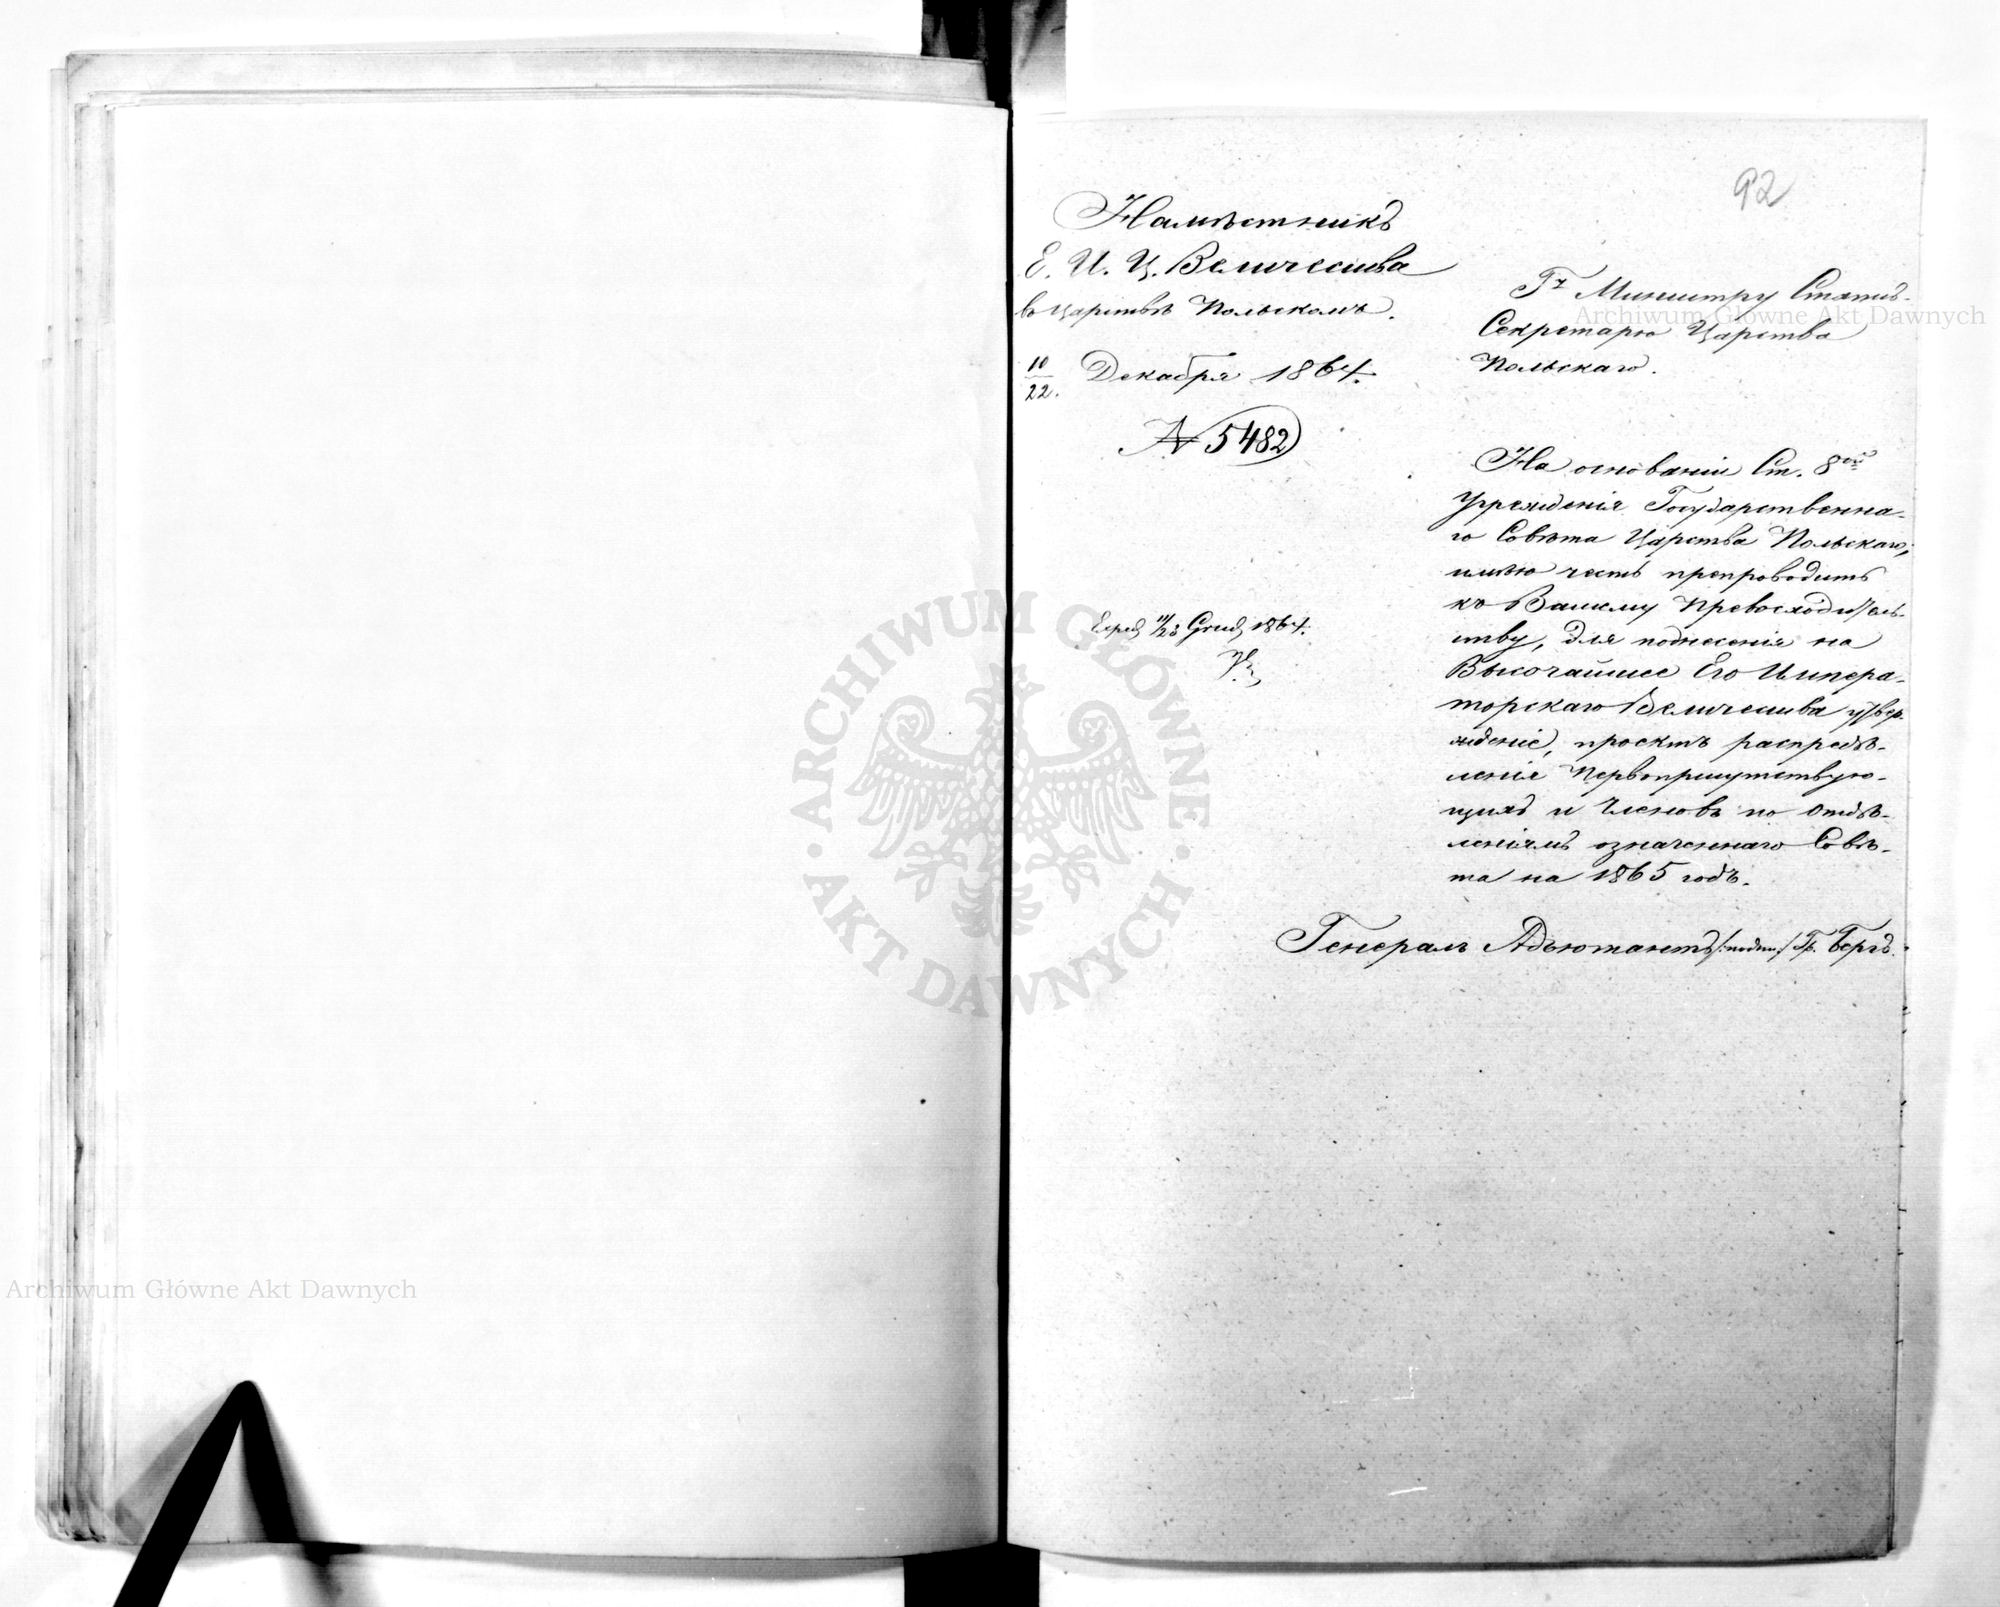 92
Намѣстникъ
Е. И. Ц. Величества
въ Царствѣ Польскомъ.
10/22. Декабря 1864.
№ 5482
Exped 11/23 Grud 1864.
Гну Министру Статсъ-
Секретарю Царства
Польскаго.
На основаніи Ст. 8ой
Учрежденія Государственна-
го Совѣта Царства Польскаго,
имѣю честь препроводить
къ Вашему Превосходитель-
ству, для поднесенія на
Высочайшее Его Импера-
торскаго Величества утвер-
жденіе, проектъ распредѣ-
ленія Первоприсутствую-
щихъ и Членовъ по Отдѣ-
леніямъ означеннаго Совѣ-
та на 1865 годъ.
Генералъ Адъютантъ /:подп:/ Гр. Бергъ.
ARCHIWUM GŁÓWNE · AKT DAWNYCH ·
Archiwum Główne Akt Dawnych
Archiwum Główne Akt Dawnych